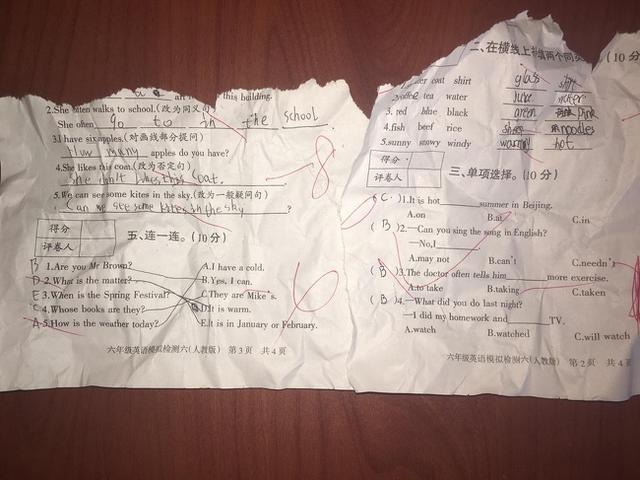 this building.
2.She often walks to school.(改为同义句)
She often go to in the school
3.I have six apples.(对画线部分提问)
How many apples do you have?
4.She likes this coat.(改为否定句)
5.We can see some kites in the sky.(改为一般疑问句)
Can we see some kites in the sky ?
得分
评卷人
五、连一连。(10分)
B 1.Are you Mr Brown? A.I have a cold.
D 2.What is the matter? B.Yes, I can.
E 3.When is the Spring Festival? C.They are Mike's.
C 4.Whose books are they? D.It is warm.
A 5.How is the weather today? E.It is in January or February.
六年级英语模拟检测六(人教版) 第3页 共4页
8
6
二、在横线上 两个同 (10分
coat shirt glass
tea water juice
3. red blue black green pink
4.fish beef rice noodles
5.sunny snowy windy warm hot
得分
评卷人
三、单项选择。(10分)
( C )1.It is hot ______ summer in Beijing.
A.on B.at C.in
( B )2.—Can you sing the song in English?
—No,I______
A.may not B.can't C.needn't
( B )3.The doctor often tells him______ more exercise.
A.to take B.taking C.taken
( B )4.—What did you do last night?
—I did my homework and______TV.
A.watch B.watched C.will watch
六年级英语模拟检测六(人教版) 第2页 共4